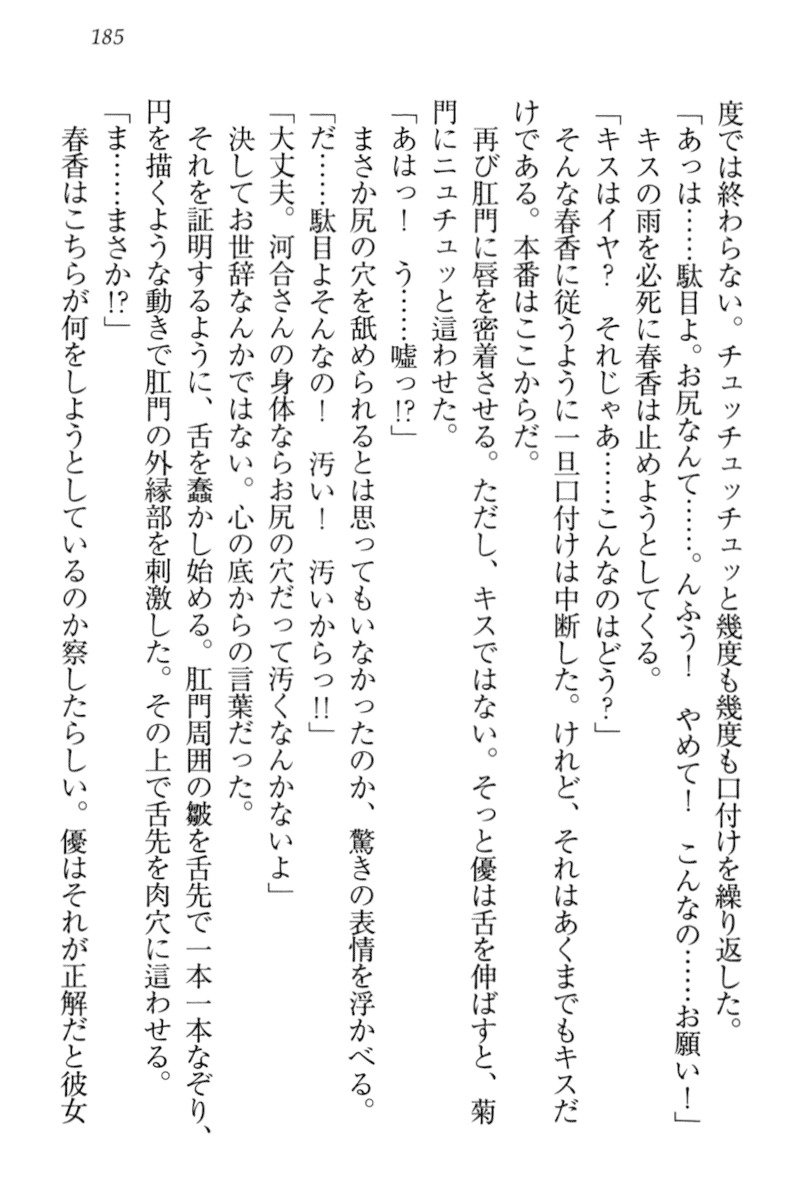 185
度では終わらない。チュッチュッチュッと幾度も幾度も口付けを繰り返した。
「あっは……駄目よ。お尻なんて……。んふう！　やめて！　こんなの……お願い！」
キスの雨を必死に春香は止めようとしてくる。
「キスはイヤ？　それじゃあ……こんなのはどう？」
そんな春香に従うように一旦口付けは中断した。けれど、それはあくまでもキスだ
けである。本番はここからだ。
再び肛門に唇を密着させる。ただし、キスではない。そっと優は舌を伸ばすと、菊
門にニュチュッと這わせた。
「あはっ！　う……嘘っ!?」
まさか尻の穴を舐められるとは思ってもいなかったのか、驚きの表情を浮かべる。
「だ……駄目よそんなの！　汚い！　汚いからっ!!」
「大丈夫。河合さんの身体ならお尻の穴だって汚くなんかないよ」
決してお世辞なんかではない。心の底からの言葉だった。
それを証明するように、舌を蠢かし始める。肛門周囲の皺を舌先で一本一本なぞり、
円を描くような動きで肛門の外縁部を刺激した。その上で舌先を肉穴に這わせる。
「ま……まさか!?」
春香はこちらが何をしようとしているのか察したらしい。優はそれが正解だと彼女